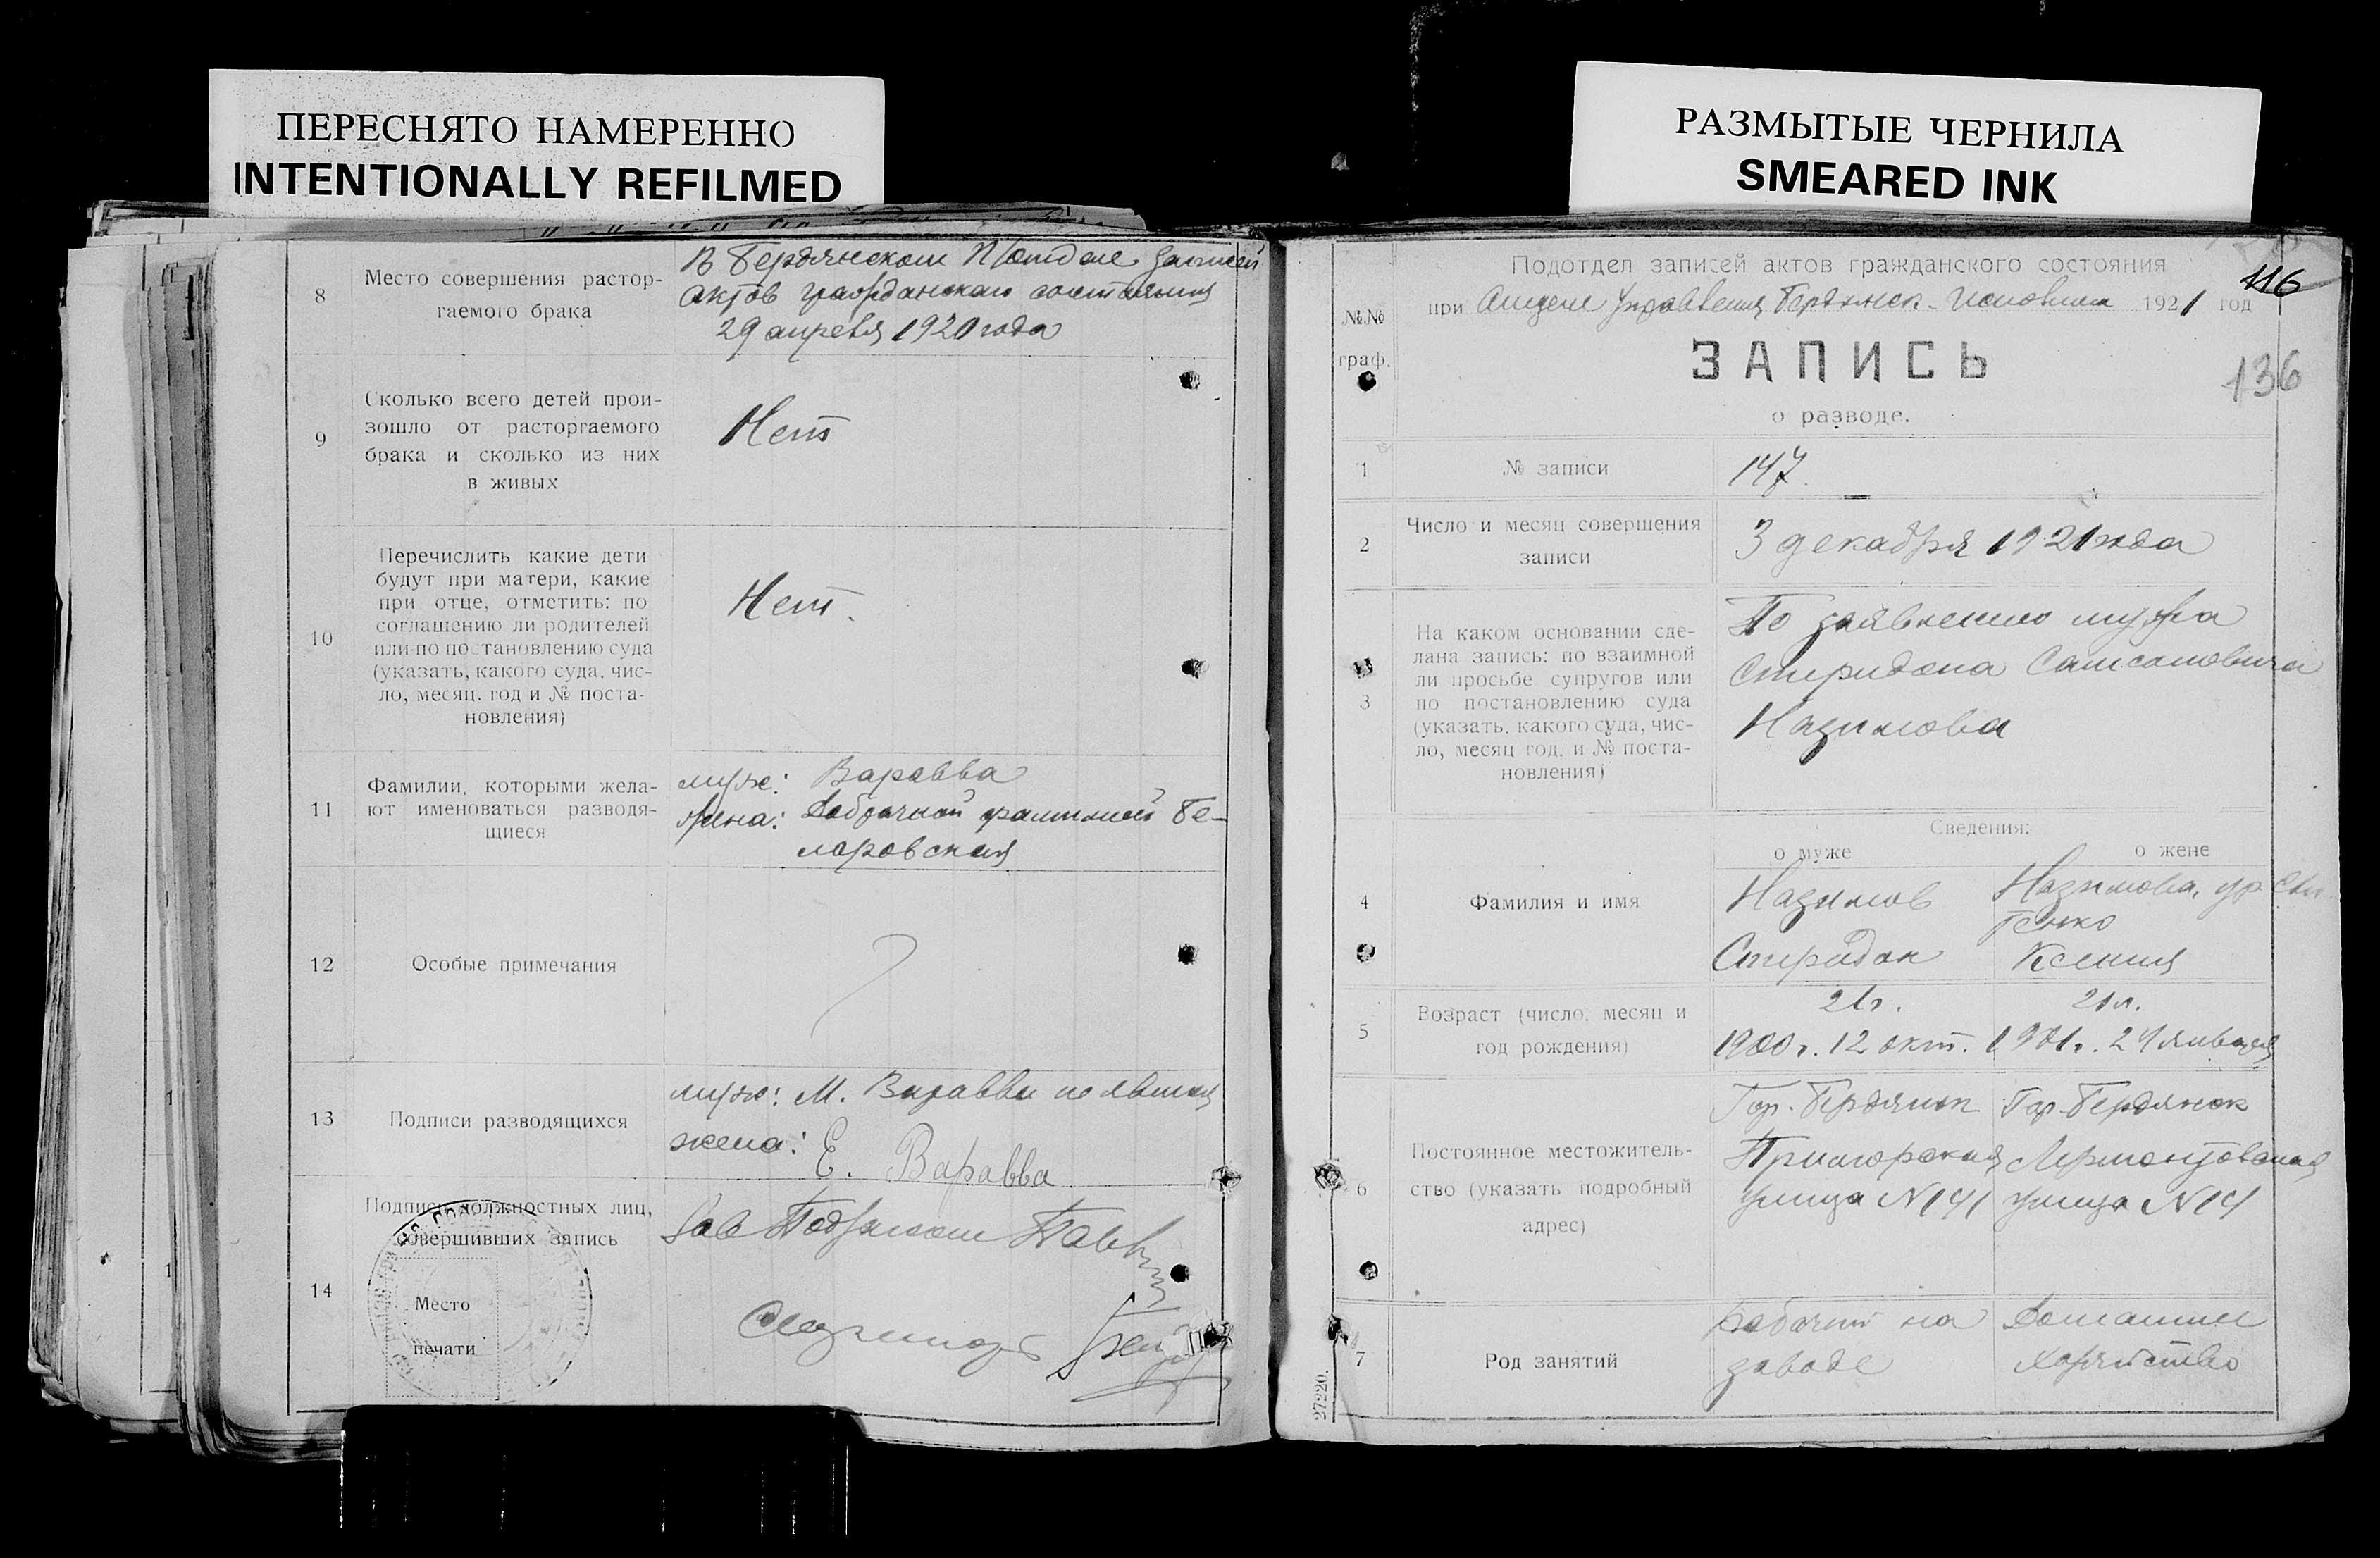 ПЕРЕСНЯТО НАМЕРЕННО
INTENTIONALLY REFILMED
8
Место совершения растор-
гаемого брака
В Бердянском П/отделе записей
актов гражданского состояния
29 апреля 1920 года
9
Сколько всего детей прои-
зошло от расторгаемого
брака и сколько из них
в живых
Нет
10
Перечислить какие дети
будут при матери, какие
при отце, отметить: по
соглашению ли родителей
или по постановлению суда
(указать, какого суда, чис-
ло, месяц, год и № поста-
новления)
Нет.
11
Фамилии, которыми жела-
ют именоваться разводя-
щиеся
муж: Варавва
жена: Добрачной фамилией Бе-
ларовская
12
Особые примечания
13
Подписи разводящихся
муж: М. Варавва не явился
жена: Е. Варавва
14
Подписи должностных лиц,
совершивших запись
Место
печати
Зав
РАЗМЫТЫЕ ЧЕРНИЛА
SMEARED INK
116
136
Подотдел записей актов гражданского состояния
при Отделе Управления Бердянск. Исполкома 1921 год
№№
граф.
ЗАПИСЬ
о разводе.
1
№ записи
147.
2
Число и месяц совершения
записи
3 декабря 1921 года
3
На каком основании сде-
лана запись: по взаимной
ли просьбе супругов или
по постановлению суда
(указать, какого суда, чис-
ло, месяц год, и № поста-
новления)
По заявлению мужа
Спиридона Самсоновича
Назимова
Сведения:
о муже
о жене
4
Фамилия и имя
Назимов
Спиридон
Назимова, ур
тенко
Ксения
5
Возраст (число, месяц и
год рождения)
21 г.
1900 г. 12 окт.
21 л.
1901 г. 24 января
6
Постоянное местожитель-
ство (указать подробный
адрес)
Гор. Бердянск
Приморская
улица № 141
Гор. Бердянск
Лермонтовская
улица № 14
7
Род занятий
рабочий на
заводе
Домашнее
хозяйство
27220.